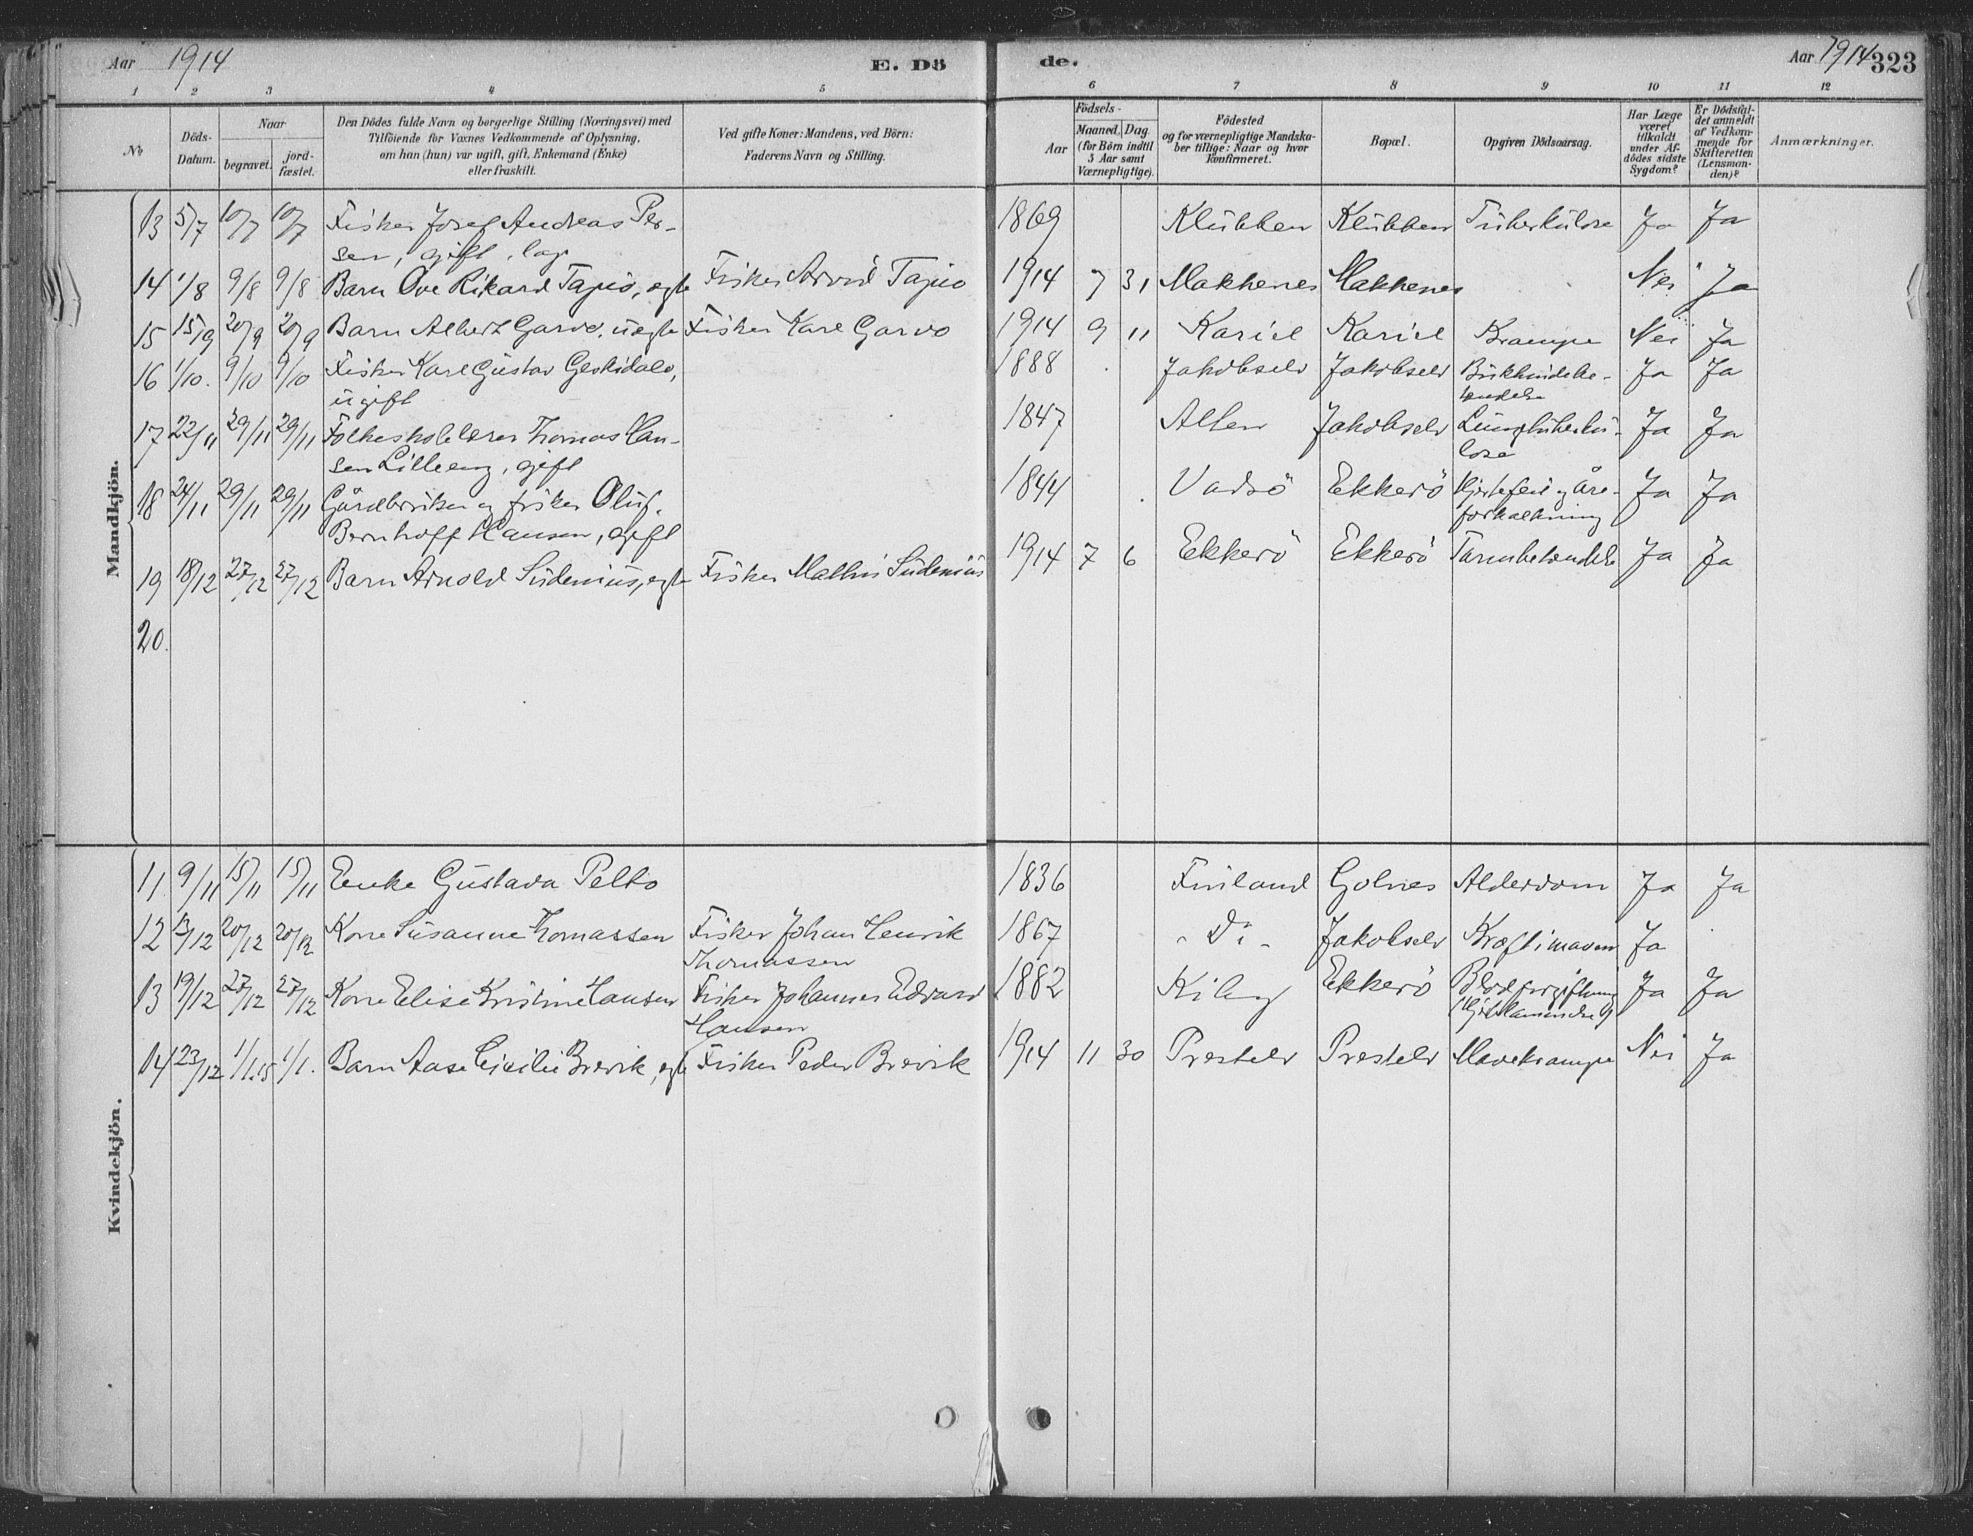 Aar 1914 E. Dö
de. Aar 1914 323
1 2 3 4 5
6 7 8 9 10 11 12
No
Döds-
Datum.
Naar
begravet.
jord-
fæstet.
Den Dödes fulde Navn og borgerlige Stilling (Næringsvei) med
Tilföiende for Voxnes Vedkommende af Oplysning,
om han (hun) var ugift, gift, Enkemand (Enke)
eller fraskilt.
Ved gifte Koner: Mandens, ved Börn:
Faderens Navn og Stilling.
Födsels-
Aar
Maaned. Dag.
(for Börn indtil
5 Aar samt
Værnepligtige).
Födested
og for værnepligtige Mandska-
ber tillige: Naar og hvor
Konfirmeret.
Bopæl.
Opgiven Dödsaarsag.
Har Læge
været
tilkaldt
under Af-
dödes sidste
Sygdom?
Er Dödsfal-
det anmeldt
af Vedkom-
mende for
Skifteretten
(Lensman-
den)?
Anmærkninger.
Mandkjön.
13 5/7 10/7 10/7 Fisker Josef Andreas Per- 1869 Klubben Klubben Tuberkulose Ja Ja
sen, gift, lap
14 1/8 9/8 9/8 Barn Ove Rikard Tapio, egte Fisker Arvid Tapio 1914 7 31 Makkenes Makkenes Nei Ja
15 15/9 20/9 20/9 Barn Albert Garvo, uegte Fisker Karl Garvo 1914 9 11 Kariel Kariel Krampe Nei Ja
16 1/10. 9/10 9/10 Fisker Karl Gustav 1888 Jakobselv Jakobselv Bukhindebe- Ja Ja
ugift tændelse
17 22/11 29/11 29/11 Folkeskolelærer Thomas Han- 1847 Alten Jakobselv Lungtuberku- Ja Ja
sen Lilleeng, gift lose
18 24/11 29/11 29/11 Gårdbruker og fisker Oluf 1844 Vadsö Ekkerö Hjertefeil og Åre- Ja Ja
Bernhoff Hansen, gift forkalkning
19 18/12 27/12 27/12 Barn Arnold Sudenius, egte Fisker Mathis Sudenius 1914 7 6 Ekkerö Ekkerö Tarmbetændelse Ja Ja
20.
Kvindekjön.
11. 9/11 15/11 15/11 Enke Gustava Pelto 1836 Finland Golnes Alderdom Ja Ja
12 13/12 20/12 20/12 Kone Susanne Thomassen Fisker Johan Henrik 1867 - Do - Jakobselv Kræft i maven Ja
Thomassen
13 19/12 27/12 27/12 Kone Elise Kristine Hansen Fisker Johannes Edvard 1882 Kiby Ekkerö Blodforgiftning Ja Ja
Hansen
14 23/12 1/1.15 1/1. Barn Aase Cicilie Brevik, egte Fisker Peder Brevik 1914 11 30 Prestelv Prestelv Mavekrampe Nei Ja